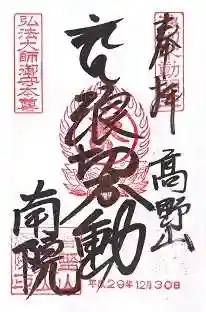 奉拝
高野山
浪切不動
南院
弘法大師
平成29年12月30日